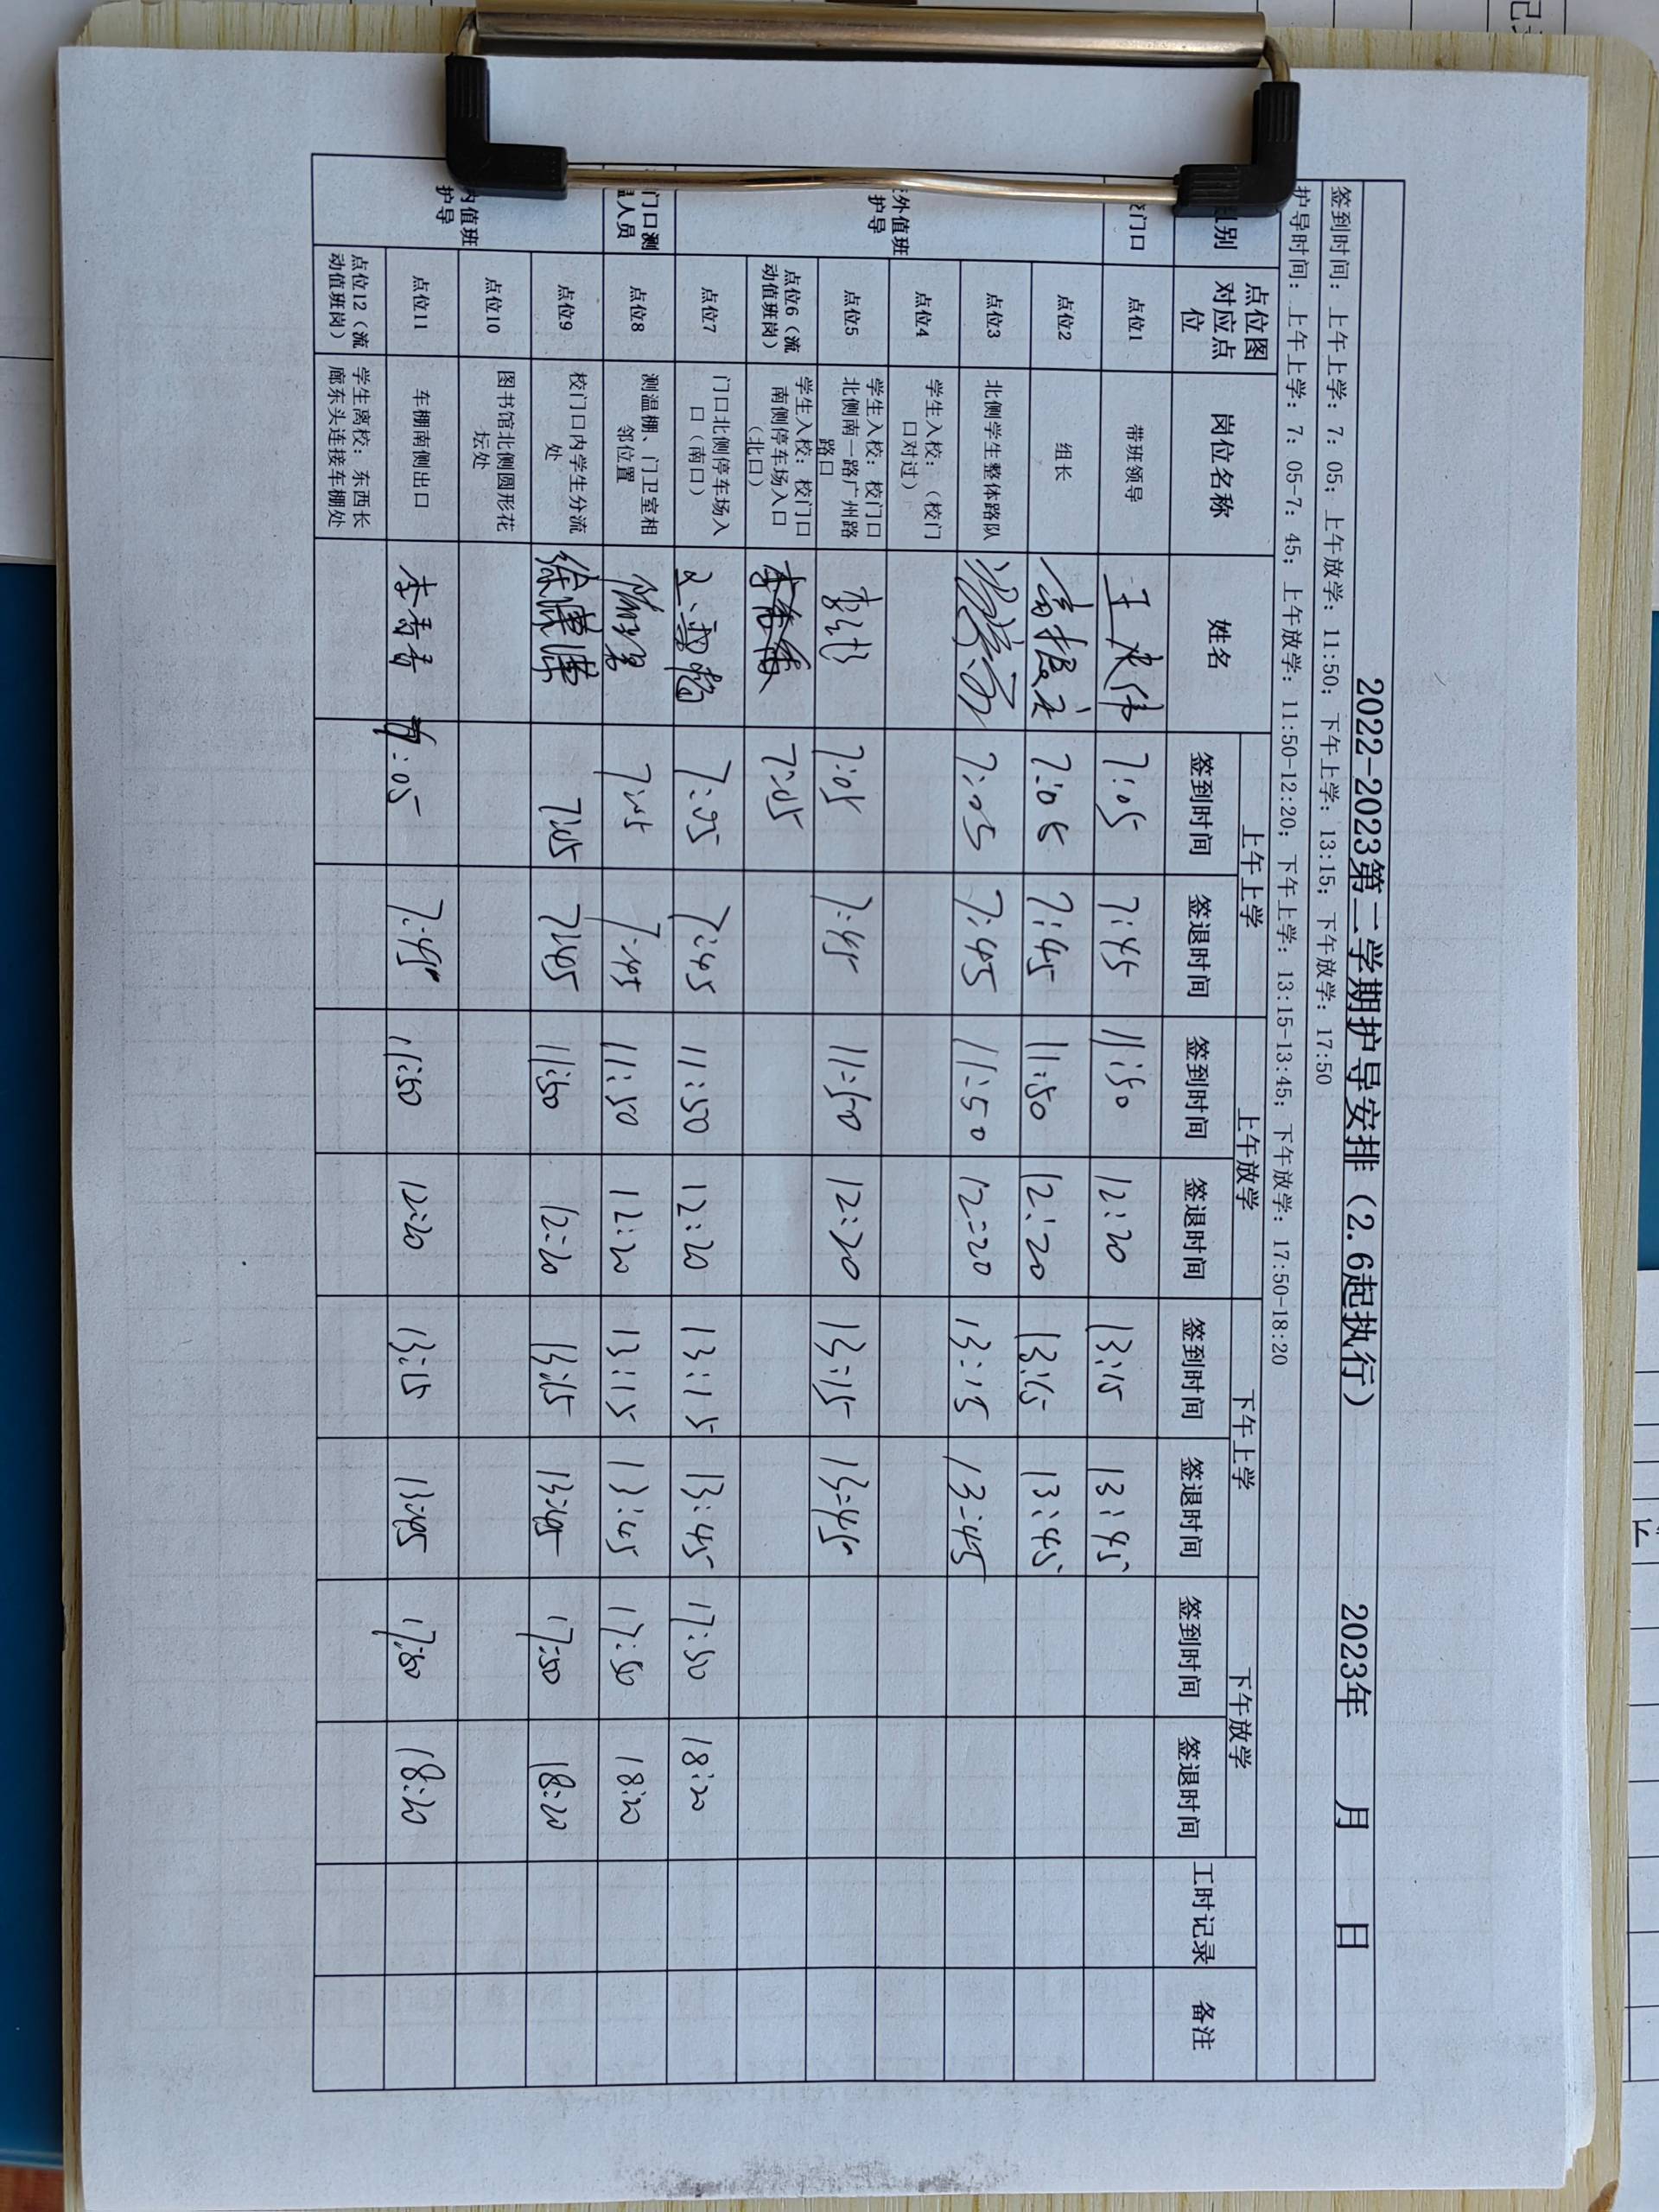 2022-2023第二学期护导安排（2.6起执行） 2023年 月 日
签到时间：上午上学：7：05；上午放学：11:50；下午上学：13:15；下午放学：17:50
护导时间：上午上学：7：05-7：45；上午放学：11:50-12:20；下午上学：13:15-13:45；下午放学：17:50-18:20
别 点位图对应点位 岗位名称 姓名 上午上学 上午放学 下午上学 下午放学 工时记录 备注
签到时间 签退时间 签到时间 签退时间 签到时间 签退时间 签到时间 签退时间
门口 点位1 带班领导 7:05 7:45 11:50 12:20 13:15 13:45
点位2 组长 7:05 7:45 11:50 12:20 13:15 13:45
外值班护导 点位3 北侧学生整体路队 7:05 7:45 11:50 12:20 13:15 13:45
点位4 学生入校：（校门口对过）
点位5 学生入校：校门口北侧南一路广州路路口 7:05 7:45 11:50 12:20 13:15 13:45
点位6（流动值班岗） 学生入校：校门口南侧停车场入口（北口） 7:05
点位7 门口北侧停车场入口（南口） 7:05 7:45 11:50 12:20 13:15 13:45 17:50 18:20
门口测人员 点位8 测温棚、门卫室相邻位置 7:05 7:45 11:50 12:20 13:15 13:45 17:50 18:20
内值班护导 点位9 校门口内学生分流处 7:05 7:45 11:50 12:20 13:15 13:45 17:50 18:20
点位10 图书馆北侧圆形花坛处
点位11 车棚南侧出口 李青青 7:05 7:45 11:50 12:20 13:15 13:45 17:50 18:20
点位12（流动值班岗） 学生离校：东西长廊东头连接车棚处